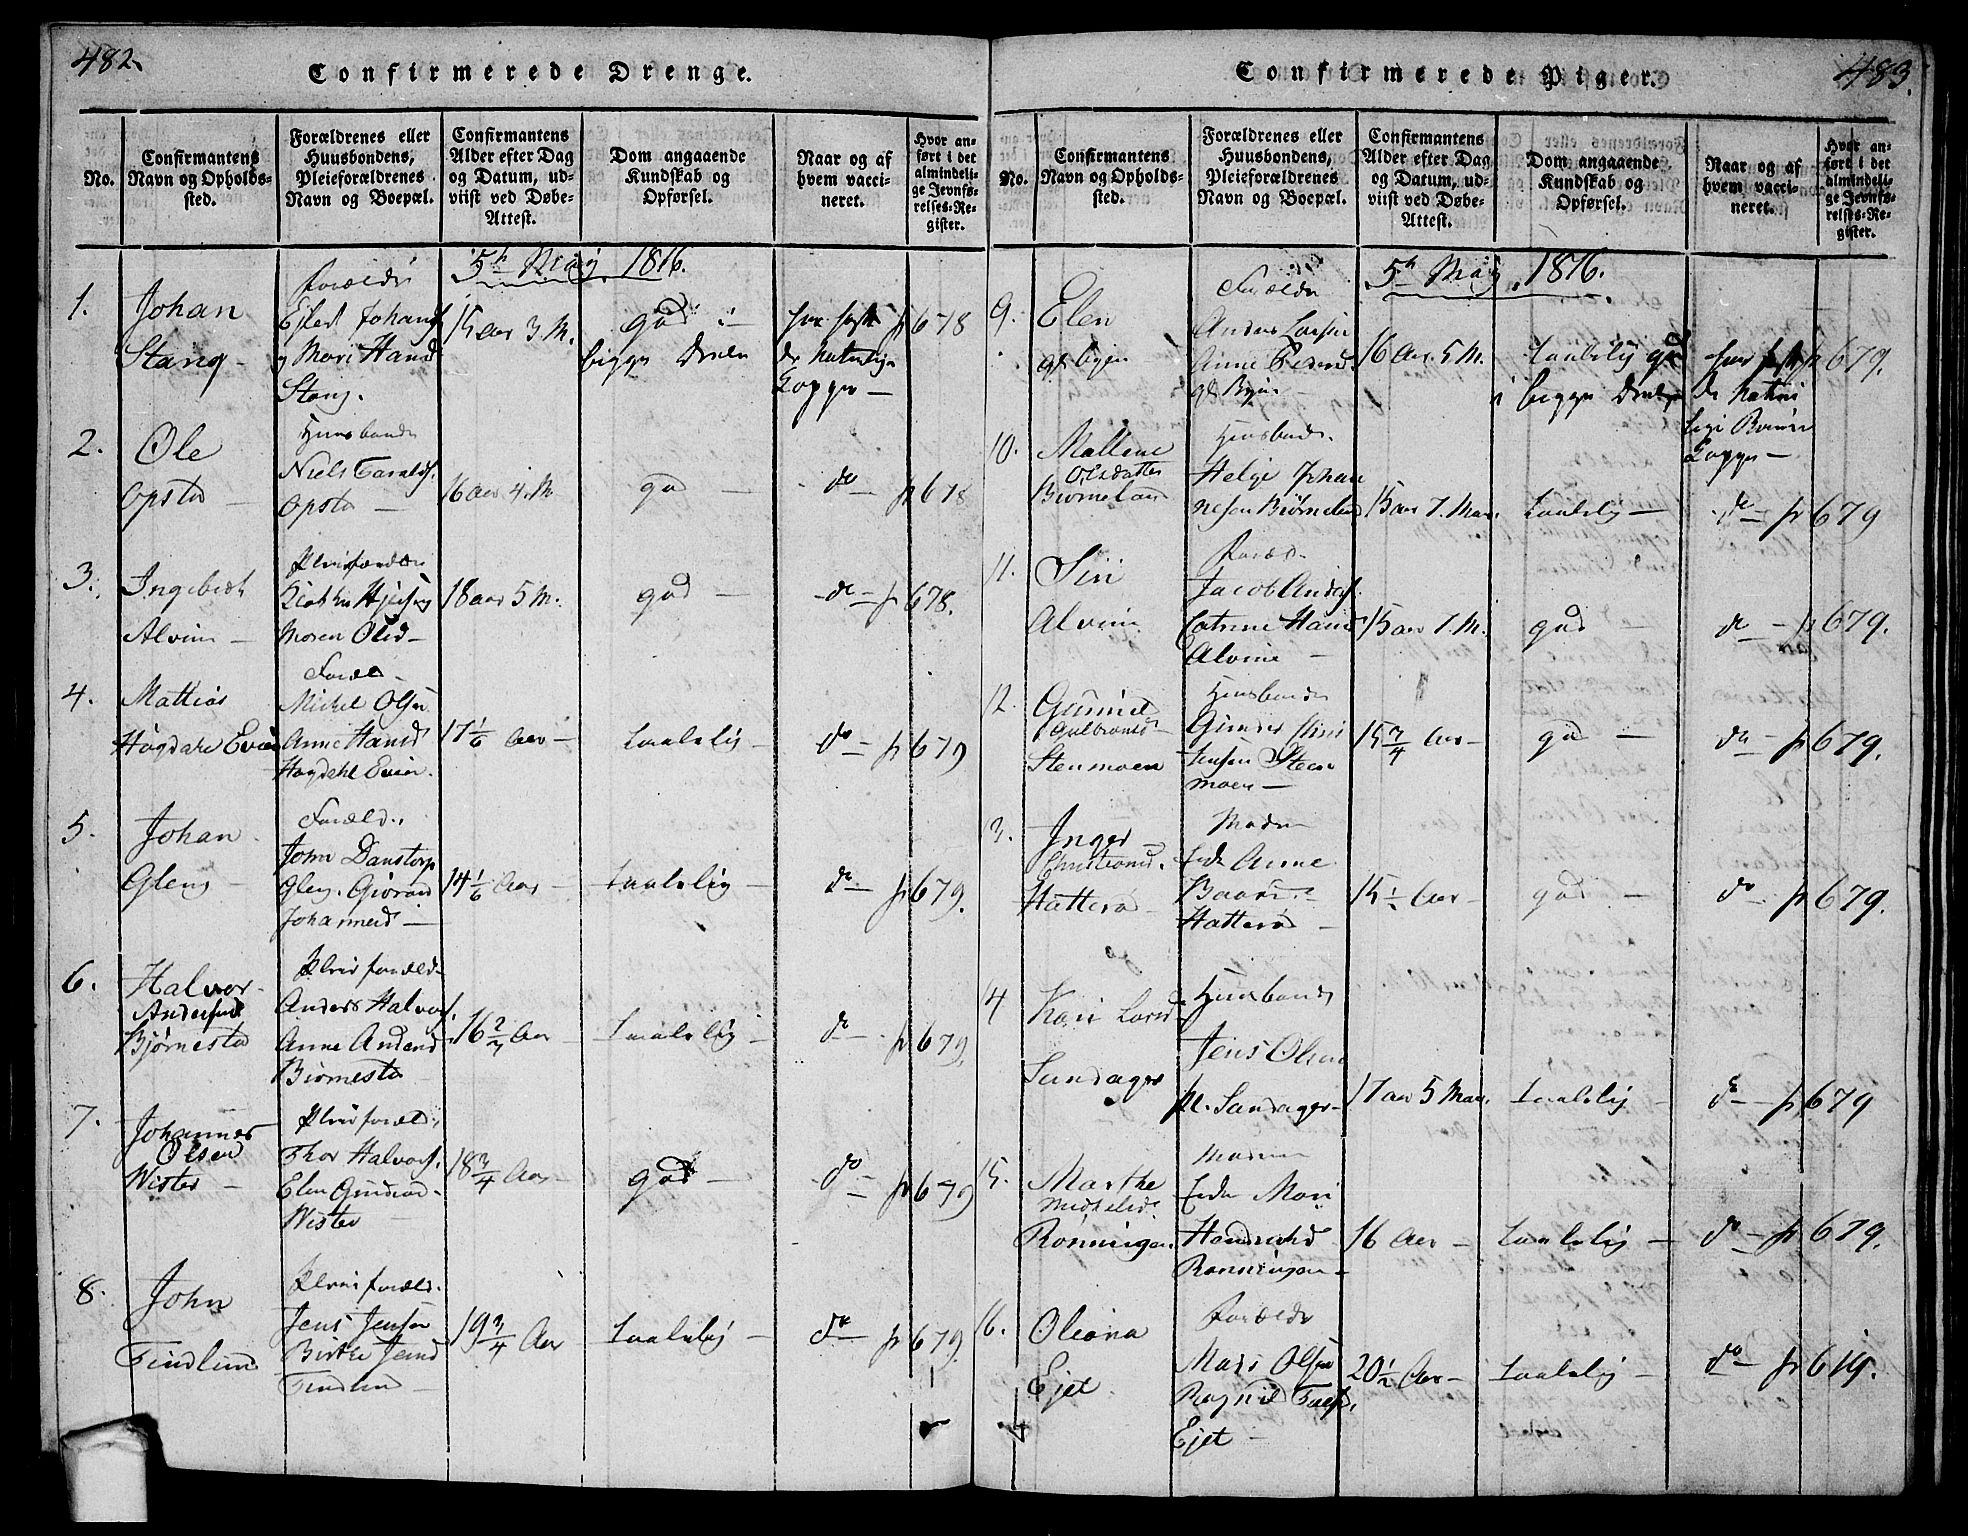 482
Confirmerede Drenge.
No.
Confirmantens
Navn og Opholds-
sted.
Forældrenes eller
Huusbondens,
Pleieforældrenes
Navn og Boepæl.
Confirmantens
Alder efter Dag
og Datum, ud-
viist ved Døbe-
Attest.
Dom angaaende
Kundskab og
Opførsel.
Naar og af
hvem vacci-
neret.
Hvor an-
ført i det
almindeli-
ge Jevnfø-
relses-Re-
gister.
5h Maij 1816.
1.
Johan
Stang
Johans
og Mari Hansd
Stang.
15 aar 3 M.
god i
begge Dele
de naturlige
Kopper
p 678
2.
Ole
Opsta
Huusbonde
Niels Taralds.
Opsta
16 aar 4 M
god
do
p 678
3.
Ingebreth
Alvim
Pleieforældre
Maren Olsd
18 aar 5 M.
god
do
p 678.
4.
Mattias
Høgdahl Evien
Foræld
Michel Olsen
Anne Hansd
Høgdahl Evien.
17 1/6 Aar
taalelig
do
p 679
5.
Johan
Gleng
Foræld.
John Danstorp
Gleng. Giørand
Johannesd
14 1/6 Aar
taalelig
do
p 679.
6.
Halvor
Andersen
Bjørnesta
Pleieforæld
Anders Halvors.
Anne Andersd
Biørnesta
16 2/3 Aar
taalelig
do
p 679.
7.
Johannes
Olsen
Wister
Pleieforæld.
Thor Halvors.
Elen Gundersd
Wister
18 3/4 Aar
god
do
p 679
8.
John
Findlund
Pleieforæld.
Jens Jensen
Birthe Jensd
Findlund
19 3/4 Aar
taalelig
do
p 679.
483.
Confirmerede Piger.
No.
Confirmantens
Navn og Opholds-
sted.
Forældrenes eller
Huusbondens,
Pleieforældrenes
Navn og Boepæl.
Confirmantens
Alder efter Dag
og Datum, ud-
viist ved Døbe-
Attest.
Dom angaaende
Kundskab og
Opførsel.
Naar og af
hvem vacci-
neret.
Hvor an-
ført i det
almindeli-
ge Jevnfø-
relses-Re-
gister.
5h Maij 1816.
9.
Elen
gl. byen
Forældr
Anders Larsen
Anne Pedersd.
gl. Byen
16 Aar 5 M.
taalelig god
i begge Dele
p 679.
10.
Mallene
Olsdatter
Biørneland
Huusbonde.
Helge Johan
nesen Biørneland
15 aar 7. Maan.
taalelig
do
p 679
11.
Siri
Alvim
Foræld
Jacob Anders.
Catrine Hansd
Alvim
15 aar 7. M.
god
do
p 679.
12.
Gunnild
Gulbrands
Stenmoen
Huusbonde
Jensen Steen
moen
15 3/4 Aar
god
do
p 679.
3.
Inger
Christiansd.
Hatterø
Moder
Enke Anne
Hatterød
15 1/2 Aar
god
do
p 679.
14
Kari Larsd
Sandager
Huusbonde
Jens Olsen
pl. Sandager
17 aar 5 Maan.
taalelig
do
p 679
15.
Marthe
Michelsd.
Rønningen
Moderen
Enke Mari
Rønningen
16 Aar
taalelig
do
p 679.
16.
Oleana
Ejet
Forældr
Mads Olsen
Ragnild
Ejet
20 1/2 Aar
taalelig
do
p 619.